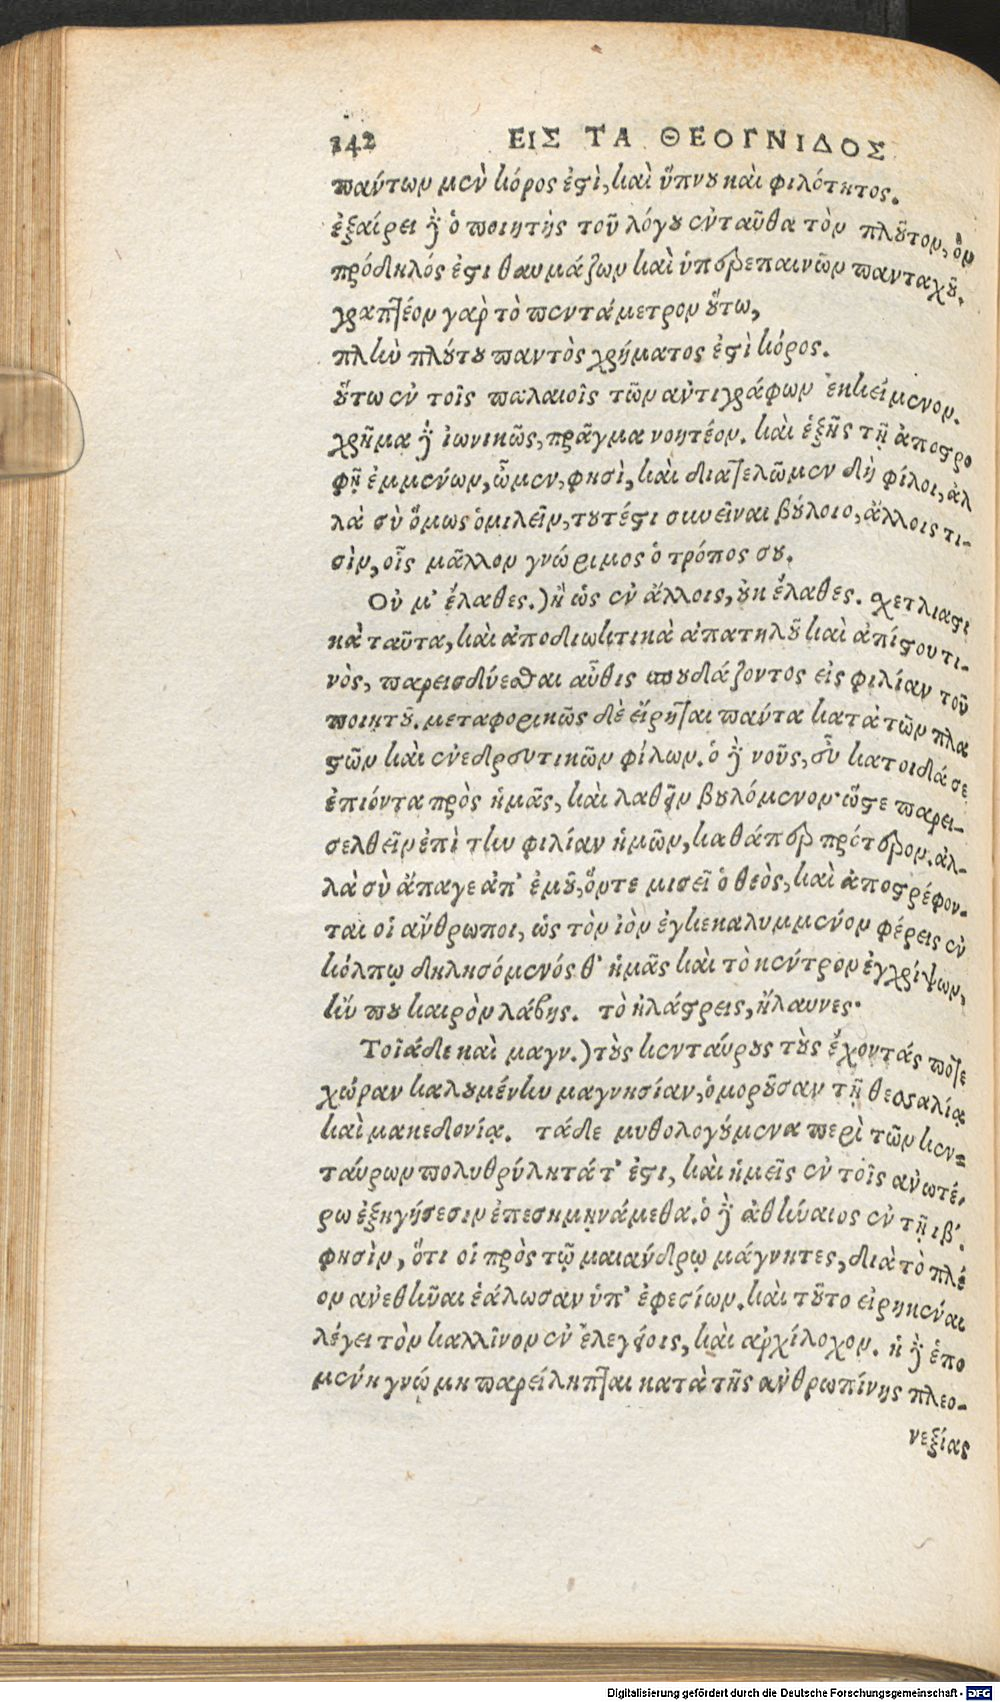 242 ΕΙΣ ΤΑ ΘΕΟΓΝΙΔΟΣ
πάντων μὲν κόρος ἐστὶ, καὶ ὕπνου καὶ φιλότητος.
ἐξαίρει δὲ ὁ ποιητὴς τοῦ λόγου ἐνταῦθα τὸν πλοῦτον, ὃν
πρόδηλός ἐστι θαυμάζων καὶ ὑπερεπαινῶν πανταχοῦ.
γραπτέον γὰρ τὸ πεντάμετρον οὕτω,
πλὴν πλούτου παντὸς χρήματος ἐστὶ κόρος.
οὕτω ἐν τοῖς παλαιοῖς τῶν ἀντιγράφων ἐκκείμενον.
χρῆμα δὲ ἰωνικῶς, πρᾶγμα νοητέον. καὶ ἑξῆς τῇ ἀποστρο
φῇ ἐμμένων, ὦμεν, φησὶ, καὶ διατελῶμεν δὴ φίλοι, ἀλ
λὰ σὺ ὅμως ὁμιλεῖν, τουτέστι συνεῖναι βούλοιο, ἄλλοις τι-
σὶν, οἷς μᾶλλον γνώριμος ὁ τρόπος σου.
Οὐ μ' ἔλαθες.) ἢ ὡς ἐν ἄλλοις, οὐκ ἔλαθες. σχετλιαστι
κὰ ταῦτα, καὶ ἀποδιωκτικὰ ἀπατηλοῦ καὶ ἀπίστου τι-
νὸς, παρεισδύεσθαι αὖθις σπουδάζοντος εἰς φιλίαν τοῦ
ποιητοῦ. μεταφορικῶς δὲ εἴρηται πάντα κατὰ τῶν πλα
στῶν καὶ ἐνεδρευτικῶν φίλων. ὁ δὲ νοῦς, εὖ κατοιδά σε
ἐπιόντα πρὸς ἡμᾶς, καὶ λαθεῖν βουλόμενον· ὥστε παρει-
σελθεῖν ἐπὶ τὴν φιλίαν ἡμῶν, καθάπερ πρότερον. ἀλ-
λὰ σὺ ἄπαγε ἀπ' ἐμοῦ, ὅντε μισεῖ ὁ θεὸς, καὶ ἀποστρέφον-
ται οἱ ἄνθρωποι, ὡς τὸν ἰὸν ἐγκεκαλυμμένον φέρεις ἐν
κόλπῳ δηλησόμενός θ' ἡμᾶς καὶ τὸ κέντρον ἐγχρίψων,
κἄν που καιρὸν λάβῃς. τὸ ἠλάστρεις, ἤλαυνες·
Τοῖάδε καὶ μαγν.) τοὺς κενταύρους τοὺς ἔχοντάς ποτε
χώραν καλουμένην μαγνησίαν, ὁμοροῦσαν τῇ θεσσαλίᾳ
καὶ μακεδονίᾳ. τάδε μυθολογούμενα περὶ τῶν κεν-
ταύρων πολυθρύλητά τ' ἐστι, καὶ ἡμεῖς ἐν τοῖς ἀνωτέ-
ρω ἐξηγήσεσιν ἐπεσημηνάμεθα. ὁ δὲ ἀθήναιος ἐν τῇ ιβ'.
φησὶν, ὅτι οἱ πρὸς τῷ μαιάνδρῳ μάγνητες, διὰ τὸ πλέ
ον ἀνεθῆναι ἑάλωσαν ὑπ' ἐφεσίων. καὶ τοῦτο εἰρηκέναι
λέγει τὸν καλλῖνον ἐν ἐλεγείοις, καὶ ἀρχίλοχον. ἡ δὲ ἑπο
μένη γνώμη παρείληπται κατὰ τῆς ἀνθρωπίνης πλεο-
νεξίας
Digitalisierung gefördert durch die Deutsche Forschungsgemeinschaft - DFG